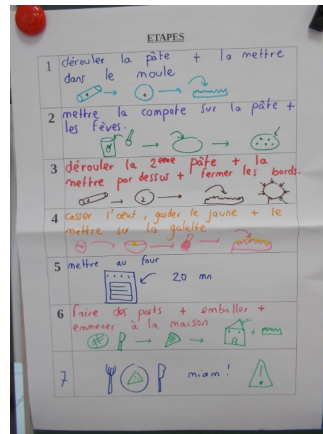 ETAPES
1 dérouler la pâte + la mettre
dans le moule
2 mettre la compote sur la pâte +
les fèves.
3 dérouler la 2ème pâte + la
mettre par dessus + fermer les bords.
2
4 casser l'oeuf, garder le jaune + le
mettre sur la galette
5 mettre au four
20 mn
6 faire des parts + emballer +
emmener à la maison
7 miam !